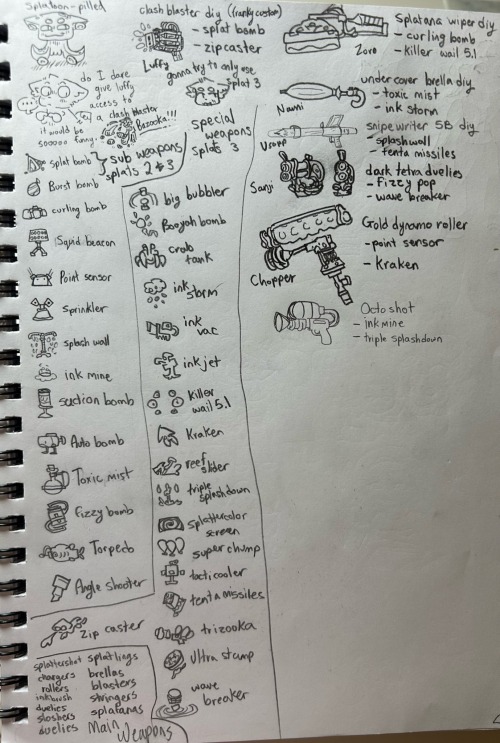 Splatoon-pilled
do I dare
give luffy
access to
a clash blaster
Bazooka!!!
it would be
sooooo funny
clash blaster diy (franky custom)
- splat bomb
- zipcaster
Luffy
gonna try to only use
splat 3
splat bomb
Burst bomb
curling bomb
Squid beacon
Point sensor
sprinkler
splash wall
ink mine
suction bomb
Auto bomb
Toxic mist
Fizzy bomb
Torpedo
Angle shooter
sub weapons
splats 2 & 3
special
weapons
splats 3
big bubbler
Booyah bomb
crab
tank
ink
storm
ink
vac
inkjet
killer
wail 5.1
Kraken
reef
slider
triple
splashdown
splattercolor
screen
super chump
tacticooler
tenta missiles
trizooka
Ultra stamp
wave
breaker
zip caster
splattershot splatlings
chargers brellas
rollers blasters
inkbrush stringers
duelies splatanas
sloshers
duelies Main Weapons
Splatana wiper diy
- curling bomb
- killer wail 5.1
Zoro
undercover brella diy
- toxic mist
- ink storm
Nami
snipewriter 5B diy
- splashwall
- tenta missiles
Usopp
dark tetra duelies
- Fizzy pop
- wave breaker
Sanji
Gold dynamo roller
- point sensor
- Kraken
Chopper
Octoshot
- ink mine
- triple splashdown